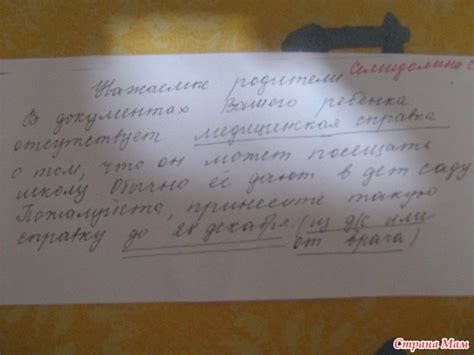 Уважаемые родители
В документах Вашего ребенка
отсутствует медицинская справка
о том, что он может посещать
школу. Обычно её дают в дет саду
Пожалуйста, принесите такую
справку до 20 декабря. (из д/с или
от врача)
Страна Мам